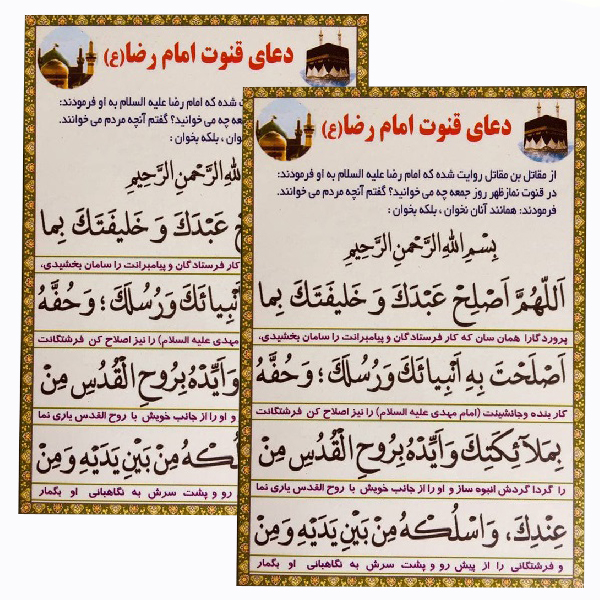 دعای قنوت امام رضا(ع)
شده که امام رضا علیه السلام به او فرمودند:
جمعه چه می خوانید؟ گفتم آنچه مردم می خوانند.
بلکه بخوان :
الرَّحْمنِ الرَّحِیمِ
عَبْدَكَ وَ خَلیفَتَكَ بِما
کار فرستادگان و پیامبرانت را سامان بخشیدی،
اَنْبِیائَكَ وَ رُسُلَكَ؛ وَ حُفَّهُ
مهدی علیه السلام) را نیز اصلاح کن فرشتگانت
وَ اَیِّدْهُ بِرُوحِ الْقُدُسِ مِنْ
و او را از جانب خویش با روح القدس یاری نما
مِنْ بَیْنِ یَدَیْهِ وَ مِنْ
رو و پشت سرش به نگاهبانی او بگمار
دعای قنوت امام رضا(ع)
از مقاتل بن مقاتل روایت شده که امام رضا علیه السلام به او فرمودند:
در قنوت نمازظهر روز جمعه چه می خوانید؟ گفتم آنچه مردم می خوانند.
فرمودند: همانند آنان نخوان ، بلکه بخوان :
بِسْمِ اللهِ الرَّحْمنِ الرَّحِیمِ
اَللّهُمَّ اَصْلِحْ عَبْدَكَ وَ خَلیفَتَكَ بِما
پروردگارا همان سان که کار فرستادگان و پیامبرانت را سامان بخشیدی،
اَصْلَحْتَ بِهِ اَنْبِیائَكَ وَ رُسُلَكَ؛ وَ حُفَّهُ
کار بنده وجانشینت (امام مهدی علیه السلام) را نیز اصلاح کن فرشتگانت
بِمَلآئِكَتِكَ وَ اَیِّدْهُ بِرُوحِ الْقُدُسِ مِنْ
را گردا گردش انبوه ساز و او را از جانب خویش با روح القدس یاری نما
عِنْدِكَ، وَ اسْلُكْهُ مِنْ بَیْنِ یَدَیْهِ وَ مِنْ
و فرشتگانی را از پیش رو و پشت سرش به نگاهبانی او بگمار